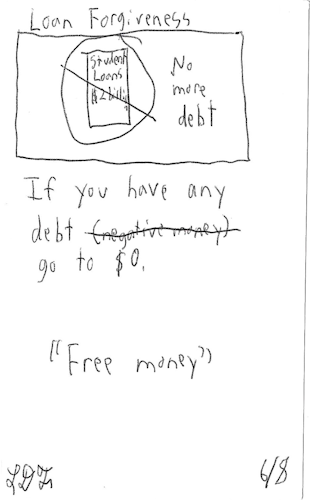 Loan Forgiveness
Student
Loans
No
more
debt
If you have any
debt (negative money)
go to $0.
"Free money"
6/8